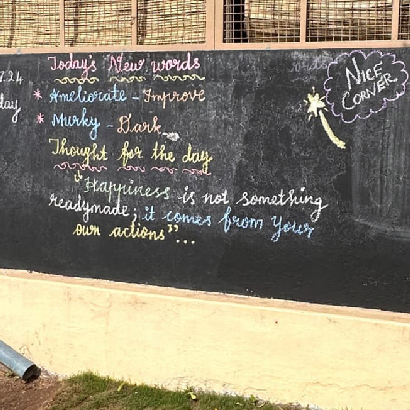 7.24
day
Today's New words
* Ameliorate - Improve
* Murky - Dark
Thought for the day
"Happiness is not something
readymade; it comes from Your
own actions"...
NICE
CORNER